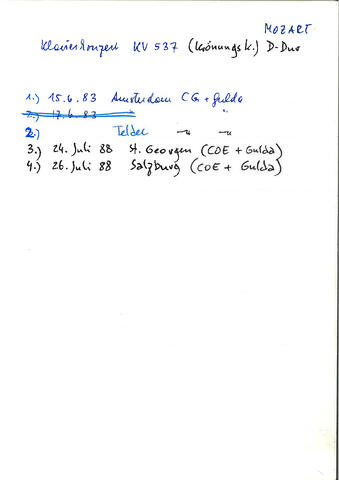 MOZART
Klavierkonzert KV 537 (Krönungsk.) D-Dur
1.) 15.6.83 Amsterdam CG + Gulda
2.) 17.6.83 "
2.) Teldec -"- -"-
3.) 24. Juli 88 St. Georgen (COE + Gulda)
4.) 26. Juli 88 Salzburg (COE + Gulda)